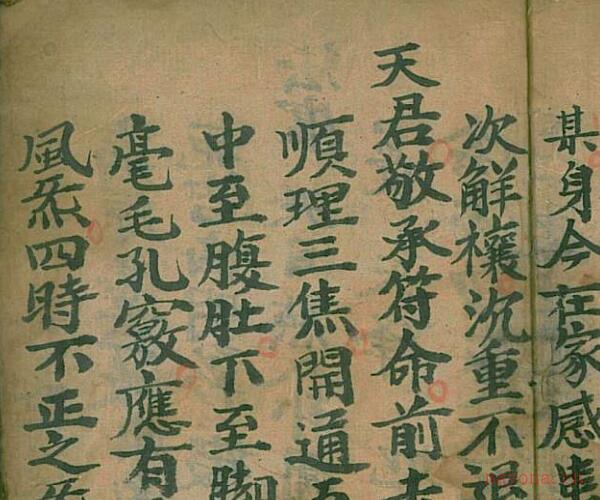 某身今在家感
次解禳沉重不
天君敬承符命前
順理三焦開通
中至腹肚下至脚
毫毛孔竅應有
風炁四時不正之